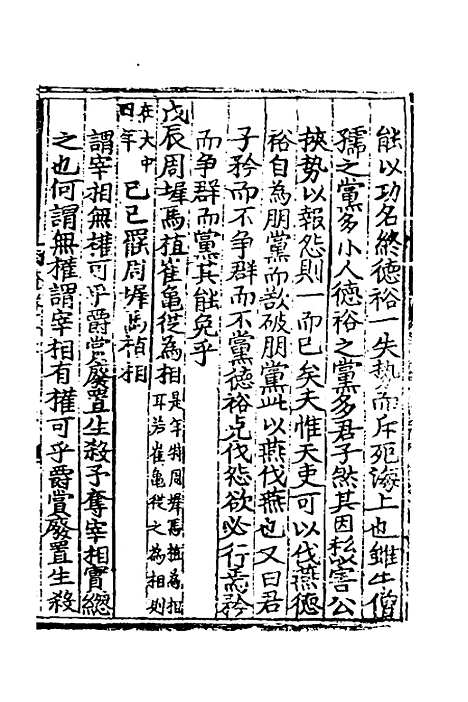 能以功名終德裕一失势而斥死海上也雖牛僧
孺之黨多小人德裕之黨多君子然其因私害公
挾勢以報怨則一而已矣夫惟天吏可以伐燕德
裕自為朋黨而欲破朋黨此以燕伐燕也又曰君
子矜而不争群而不黨德裕克伐怨欲必行焉矜
而争群而黨其能免乎
戊辰周墀馬植崔龜從為相是年特周墀馬植為相
耳若崔龜從之為相則
在大中
四年 己巳罷周墀馬植相
謂宰相無權可乎爵賞廢置生殺予奪宰相實總
之也何謂無權謂宰相有權可乎爵賞廢置生殺